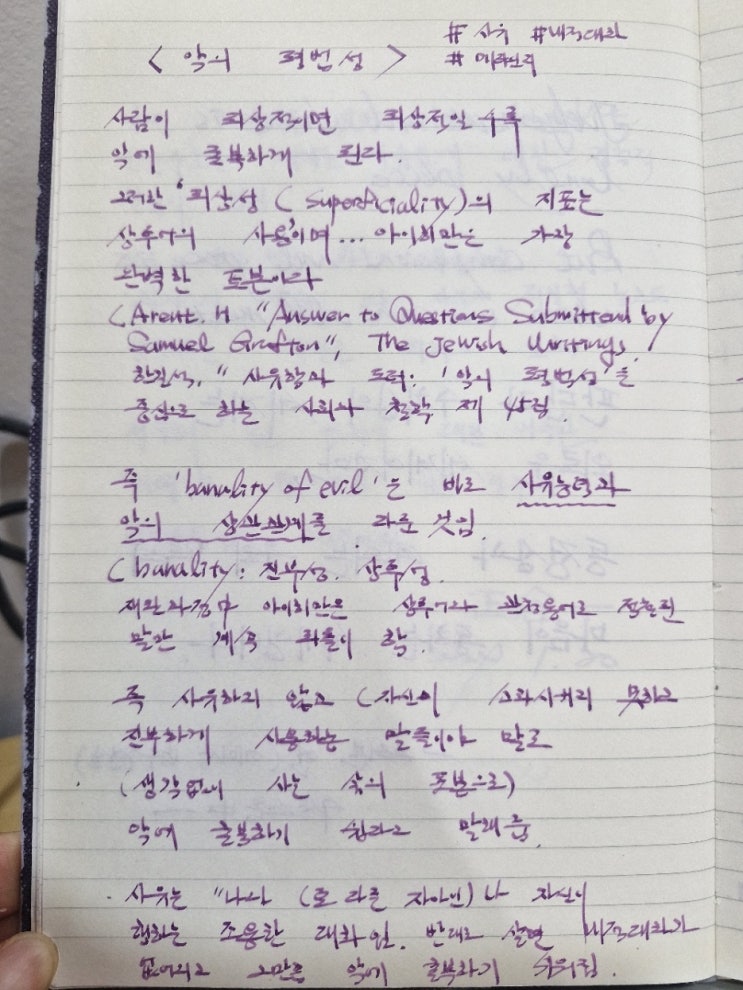 # 사유 #내적대화
< 악의 평범성 > # 메타인지
사람이 피상적이면 피상적일수록
악에 굴복하게 된다.
그러한 '피상성 (superficiality)의 지표는
상투어의 사용'이며... 아이히만은 가장
완벽한 표본이다
(Arent. H "Answer to Questions Submitted by
Samuel Grafton", The Jewish Writings.
한길석, "사유함과 도덕: '악의 평범성'을
중심으로 하는 사회와 철학 제 45집.
즉 'banality of evil'은 바로 사유능력과
악의 상관관계를 다룬 것임.
(banality: 진부성. 상투성.
재판과정中 아이히만은 상투어와 관청용어로 점철된
말만 계속 되풀이 함.
즉 사유하지 않고 (자신이 소화시키지 못하고
진부하게 사용하는 말들이야 말로
(생각없이 사는 삶의 표본으로)
악에 굴복하기 쉽다고 말해줌.
· 사유는 "나나 (또 다른 자아인) 나 자신이
행하는 조용한 대화임. 반대로 살면 내적대화가
없어지고 그만큼 악에 굴복하기 쉬워짐.